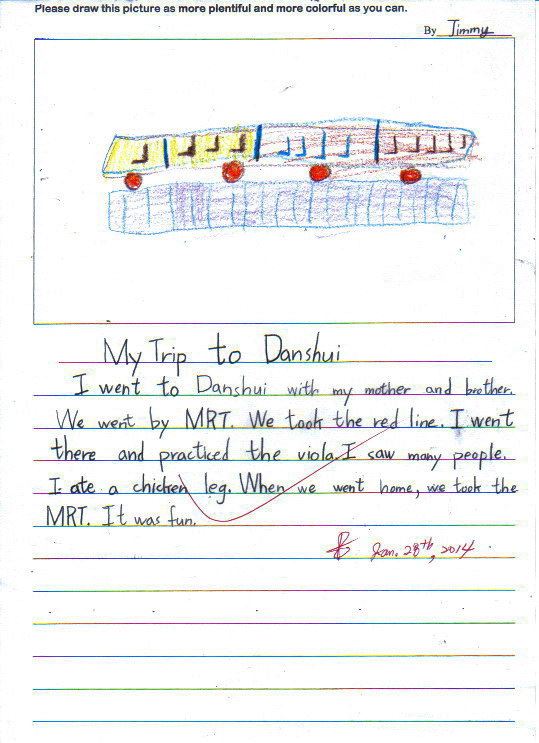 Please draw this picture as more plentiful and more colorful as you can.
By Jimmy
My Trip to Danshui
I went to Danshui with my mother and brother.
We went by MRT. We took the red line. I went
there and practiced the viola. I saw many people.
I ate a chicken leg. When we went home, we took the
MRT. It was fun.
Jan. 28th, 2014